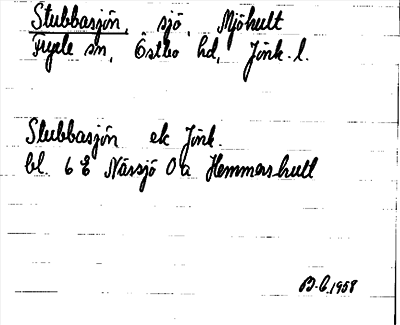 Stubbasjön, sjö, Mjöhult
Fryele sn, Östbo hd, Jönk. l.
Stubbasjön ek Jönk.
bl. 6 E Nässjö 0 a Hemmershult
B-G. 1958